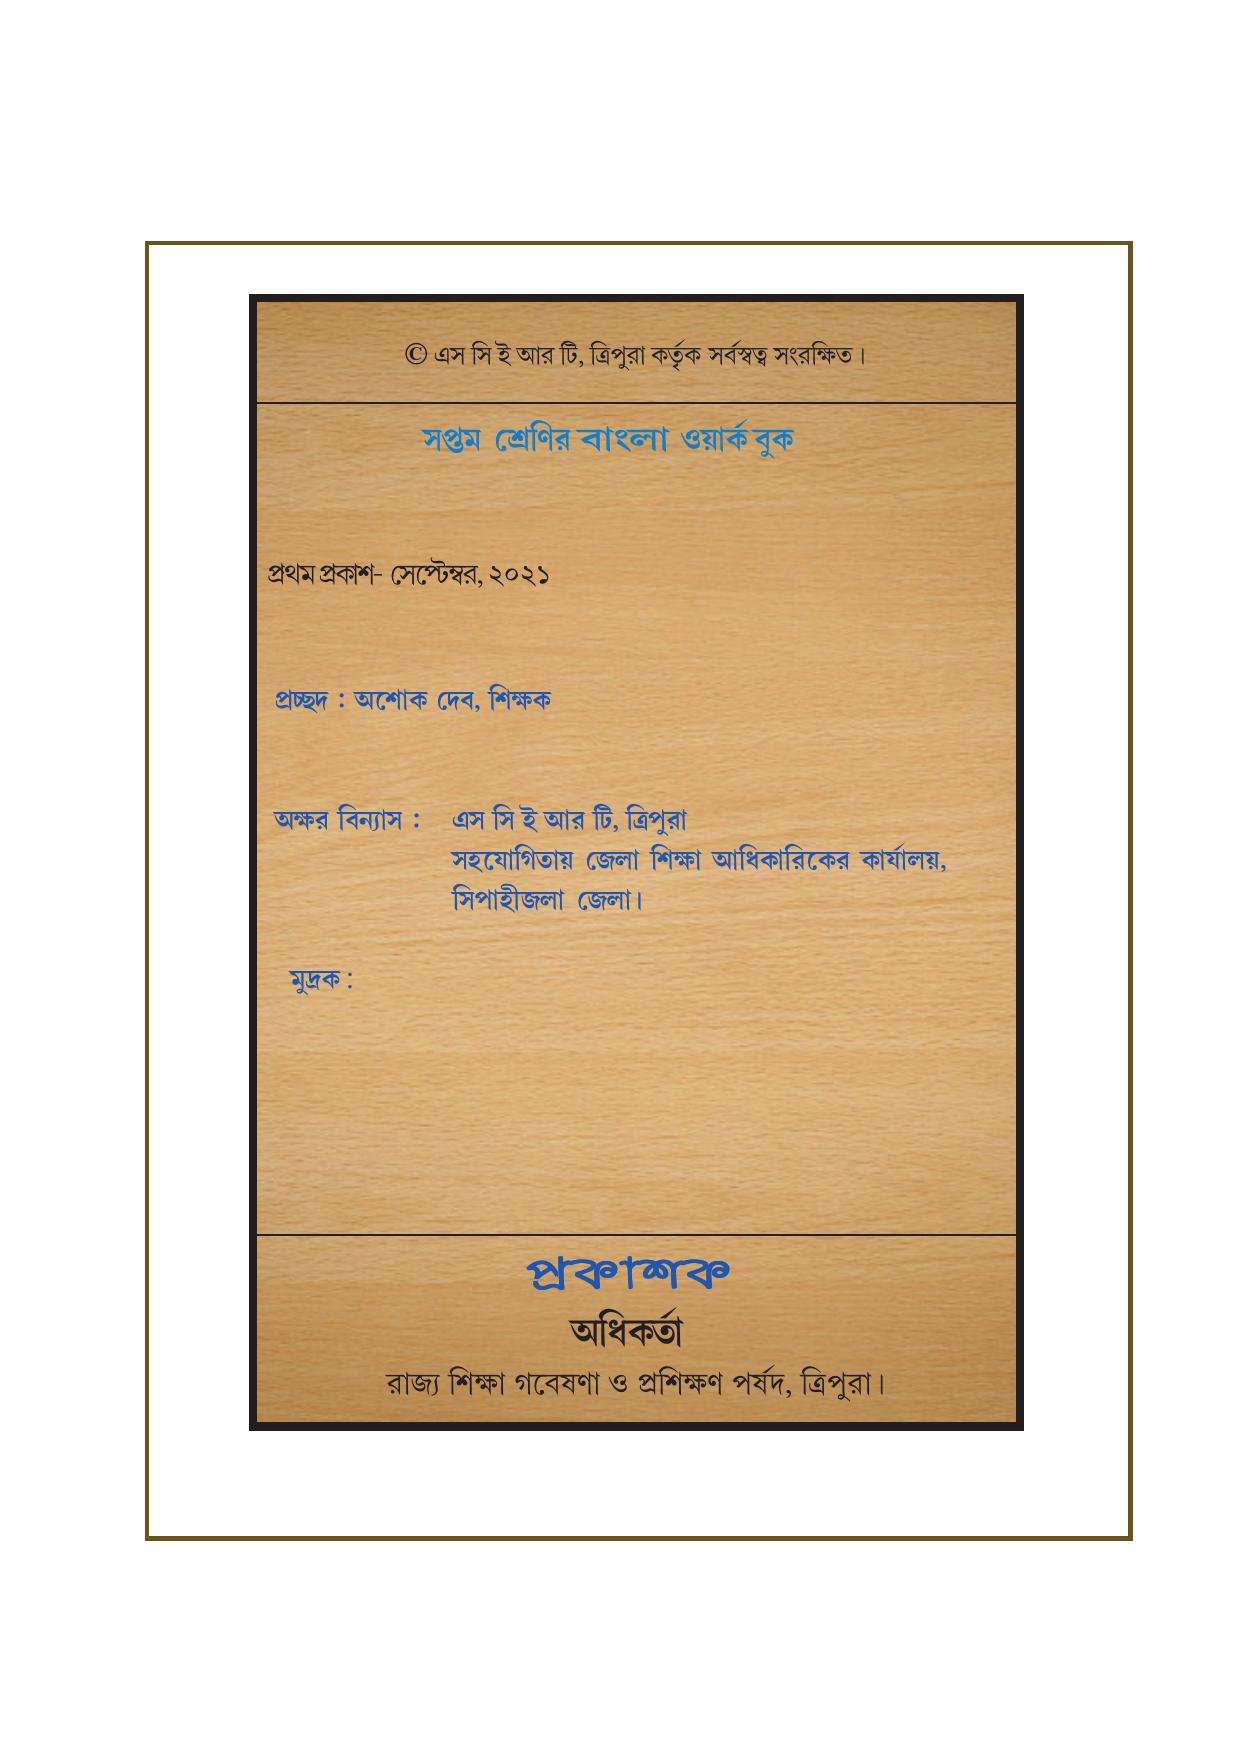 © এস সি ই আর টি, ত্রিপুরা কর্তৃক সর্বস্বত্ব সংরক্ষিত।
সপ্তম শ্রেণির বাংলা ওয়ার্ক বুক
প্রথম প্রকাশ- সেপ্টেম্বর, ২০২১
প্রচ্ছদ : অশোক দেব, শিক্ষক
অক্ষর বিন্যাস : এস সি ই আর টি, ত্রিপুরা
সহযোগিতায় জেলা শিক্ষা আধিকারিকের কার্যালয়,
সিপাহীজলা জেলা।
মুদ্রক :
প্রকাশক
অধিকর্তা
রাজ্য শিক্ষা গবেষণা ও প্রশিক্ষণ পর্ষদ, ত্রিপুরা।